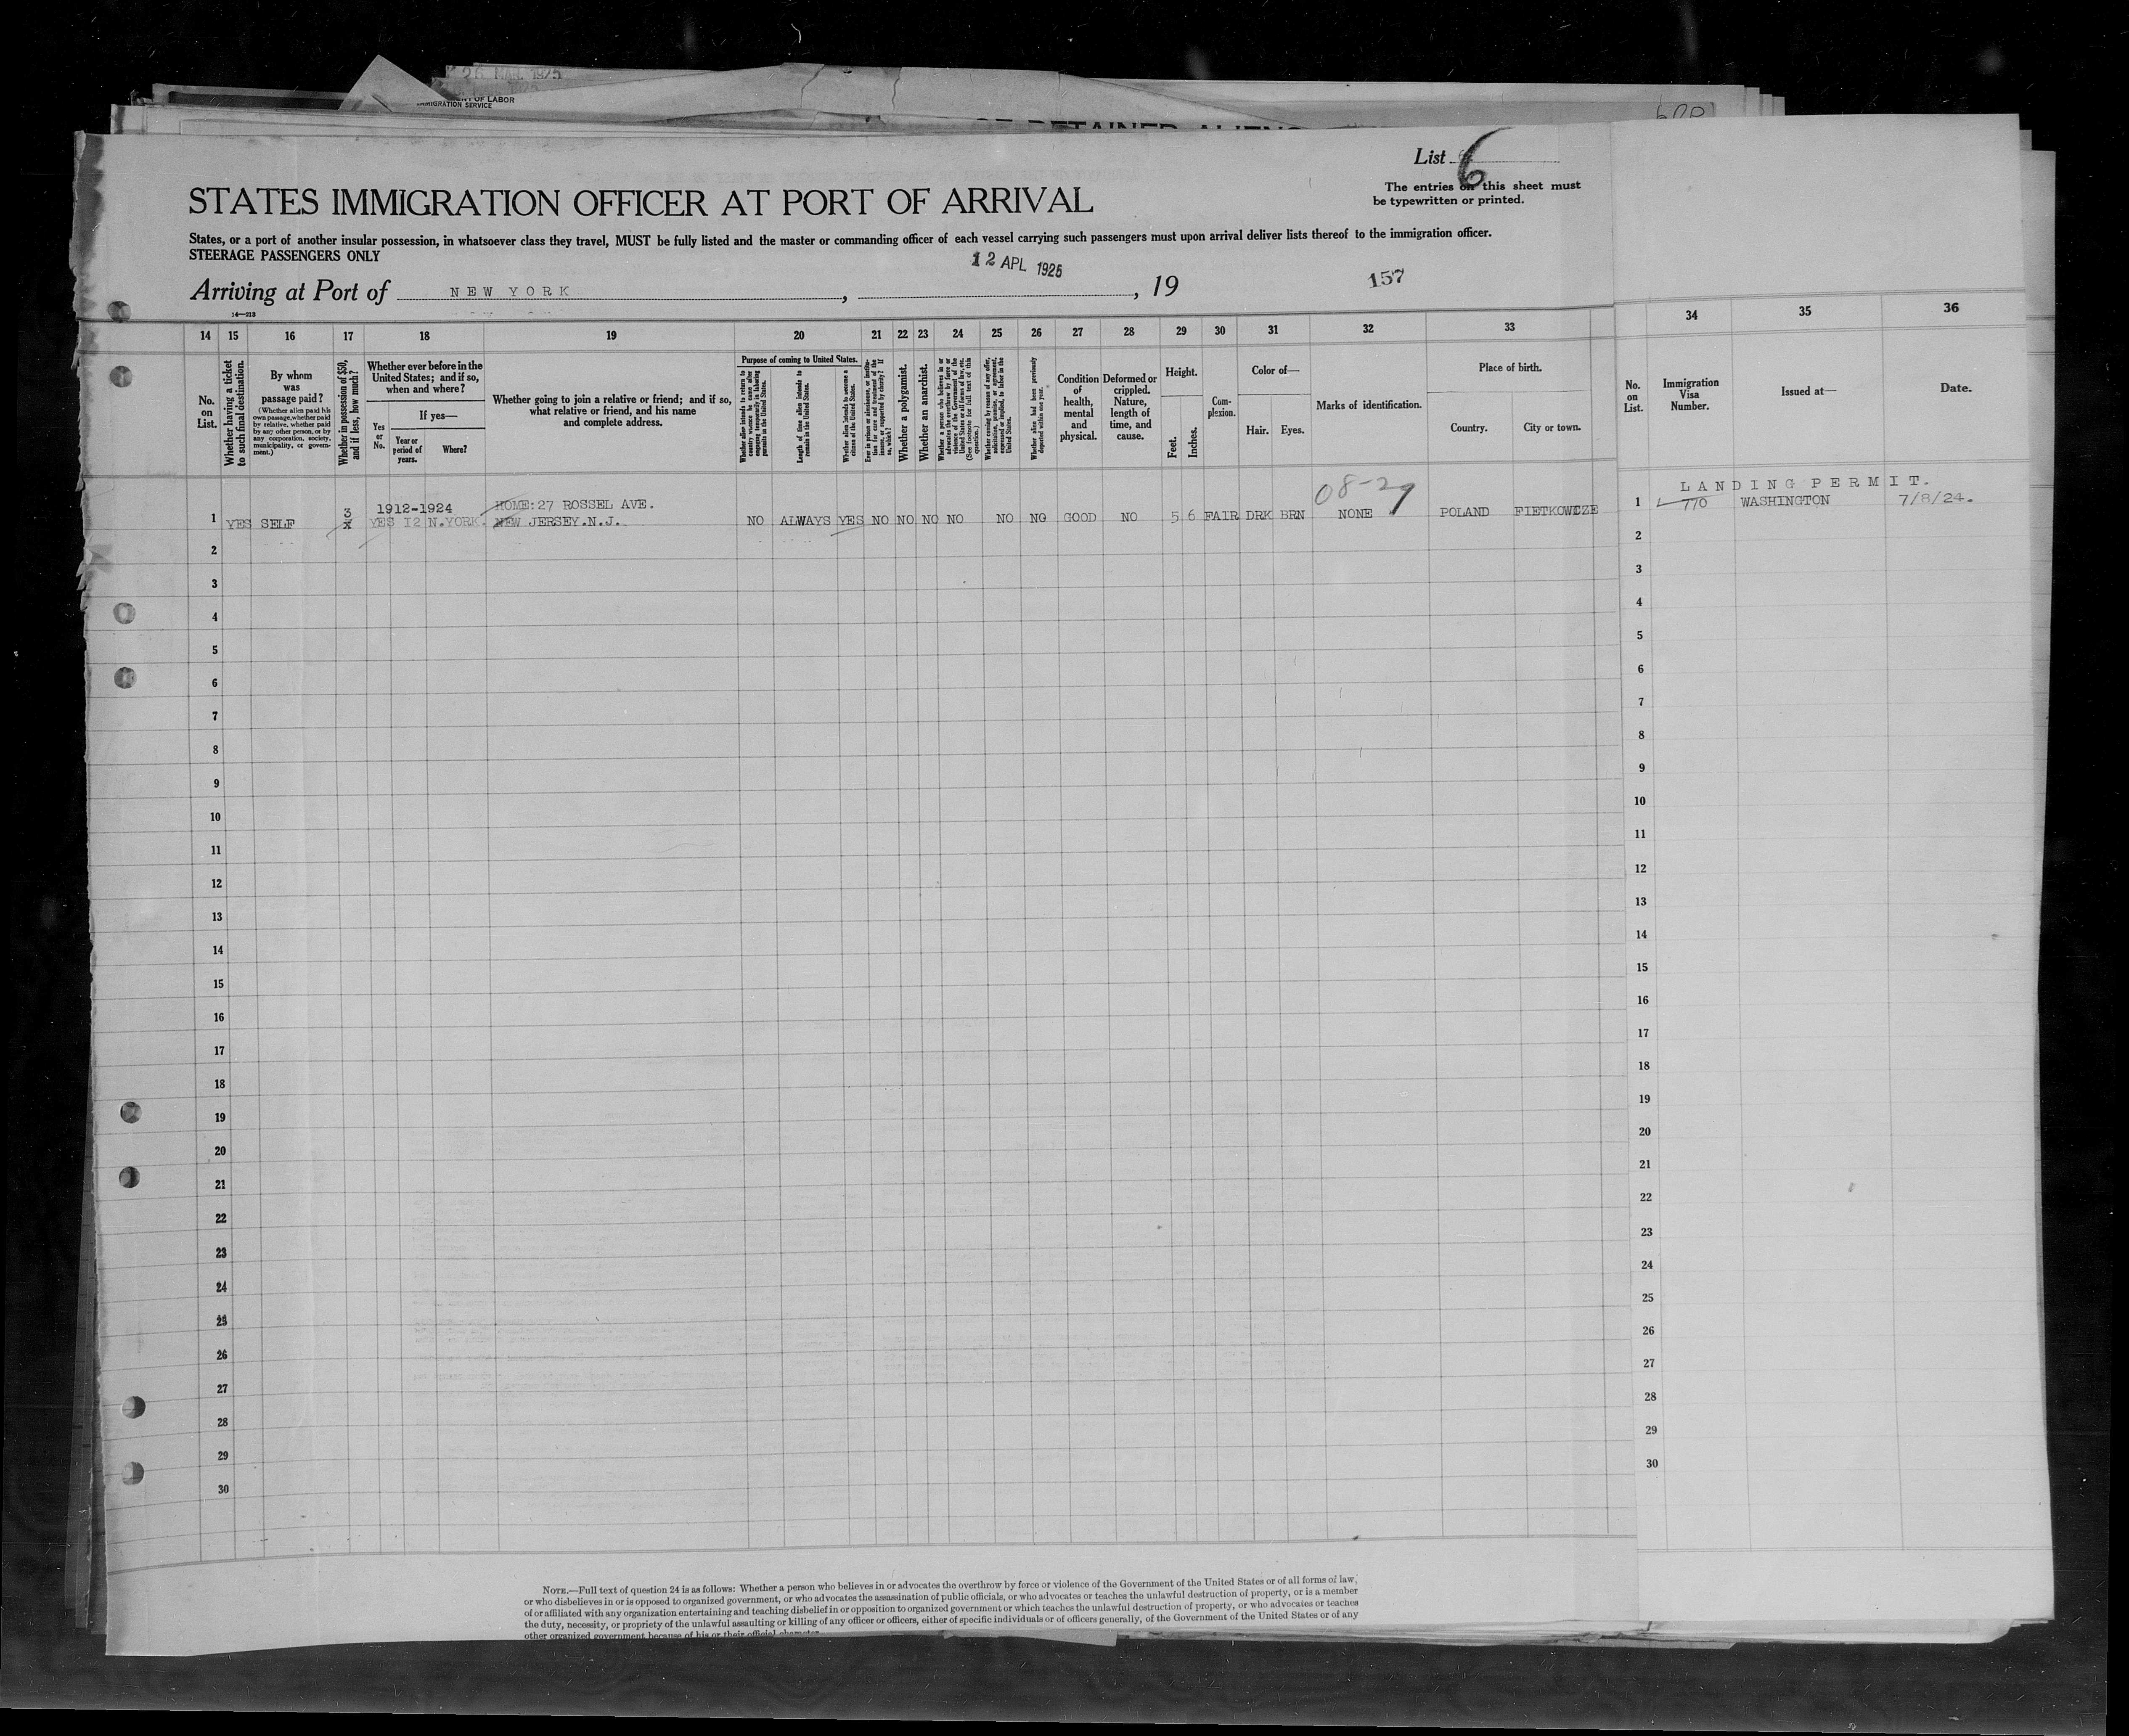 26 MAR. 1925
OF LABOR
IMMIGRATION SERVICE
List 6
The entries on this sheet must
be typewritten or printed.
STATES IMMIGRATION OFFICER AT PORT OF ARRIVAL
States, or a port of another insular possession, in whatsoever class they travel, MUST be fully listed and the master or commanding officer of each vessel carrying such passengers must upon arrival deliver lists thereof to the immigration officer.
STEERAGE PASSENGERS ONLY
12 APL 1925
Arriving at Port of NEW YORK, , 19
157
14 15 16 17 18 19 20 21 22 23 24 25 26 27 28 29 30 31 32 33 34 35 36
No. on List.
Whether having a ticket to such final destination.
By whom was passage paid?
(Whether alien paid his own passage, whether paid by relative, whether paid by any other person, or by any corporation, society, municipality, or government.)
Whether in possession of $50, and if less, how much?
Whether ever before in the United States; and if so, when and where?
If yes—
Yes or No.
Year or period of years.
Where?
Whether going to join a relative or friend; and if so, what relative or friend, and his name and complete address.
Purpose of coming to United States.
Length of time alien intends to remain in the United States.
Whether alien intends to become a citizen of the United States.
Whether a polygamist.
Whether an anarchist.
Whether alien had been previously deported within one year.
Condition of health, mental and physical.
Deformed or crippled. Nature, length of time, and cause.
Height.
Feet.
Inches.
Complexion.
Color of—
Hair.
Eyes.
Marks of identification.
Place of birth.
Country.
City or town.
No. on List.
Immigration Visa Number.
Issued at—
Date.
08-29
LANDING PERMIT.
3 1912-1924 HOME:27 ROSSEL AVE.
1 YES SELF YES 12 N.YORK. NEW JERSEY.N.J. NO ALWAYS YES NO NO NO NO NO NO GOOD NO 5 6 FAIR DRK BRN NONE POLAND FIETKOWIZE 1 770 WASHINGTON 7/8/24.
2 2
3 3
4 4
5 5
6 6
7 7
8 8
9 9
10 10
11 11
12 12
13 13
14 14
15 15
16 16
17 17
18 18
19 19
20 20
21 21
22 22
23 23
24 24
25 25
26 26
27 27
28 28
29 29
30 30
NOTE.—Full text of question 24 is as follows: Whether a person who believes in or advocates the overthrow by force or violence of the Government of the United States or of all forms of law,
or who disbelieves in or is opposed to organized government, or who advocates the assassination of public officials, or who advocates or teaches the unlawful destruction of property, or is a member
of or affiliated with any organization entertaining and teaching disbelief in or opposition to organized government or which teaches the unlawful destruction of property, or who advocates or teaches
the duty, necessity, or propriety of the unlawful assaulting or killing of any officer or officers, either of specific individuals or of officers generally, of the Government of the United States or of any
other organized government because of his or their official character.